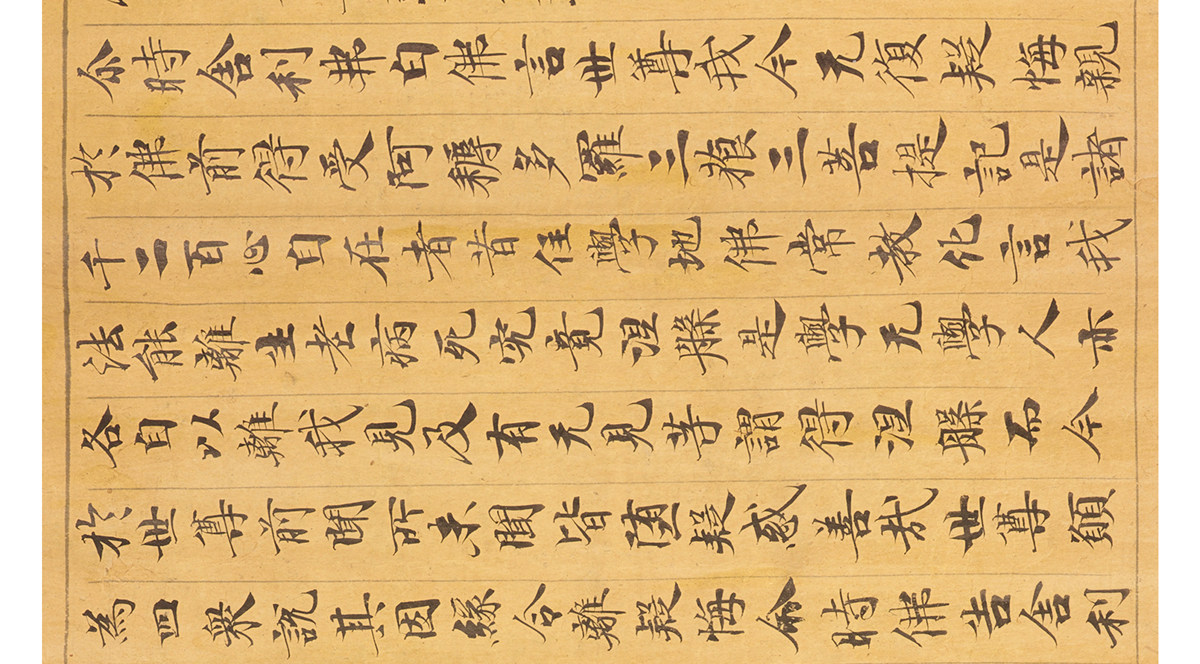 尒時舍利弗白佛言世尊我今无復疑悔親
於佛前得受阿耨多羅三藐三菩提記是諸
千二百心自在者昔住學地佛常教化言我
法能離生老病死究竟涅槃是學无學人亦
各自以離我見及有无見等謂得涅槃而今
於世尊前聞所未聞皆墮疑惑善哉世尊願
為四衆說其因緣令離疑悔尒時佛告舍利